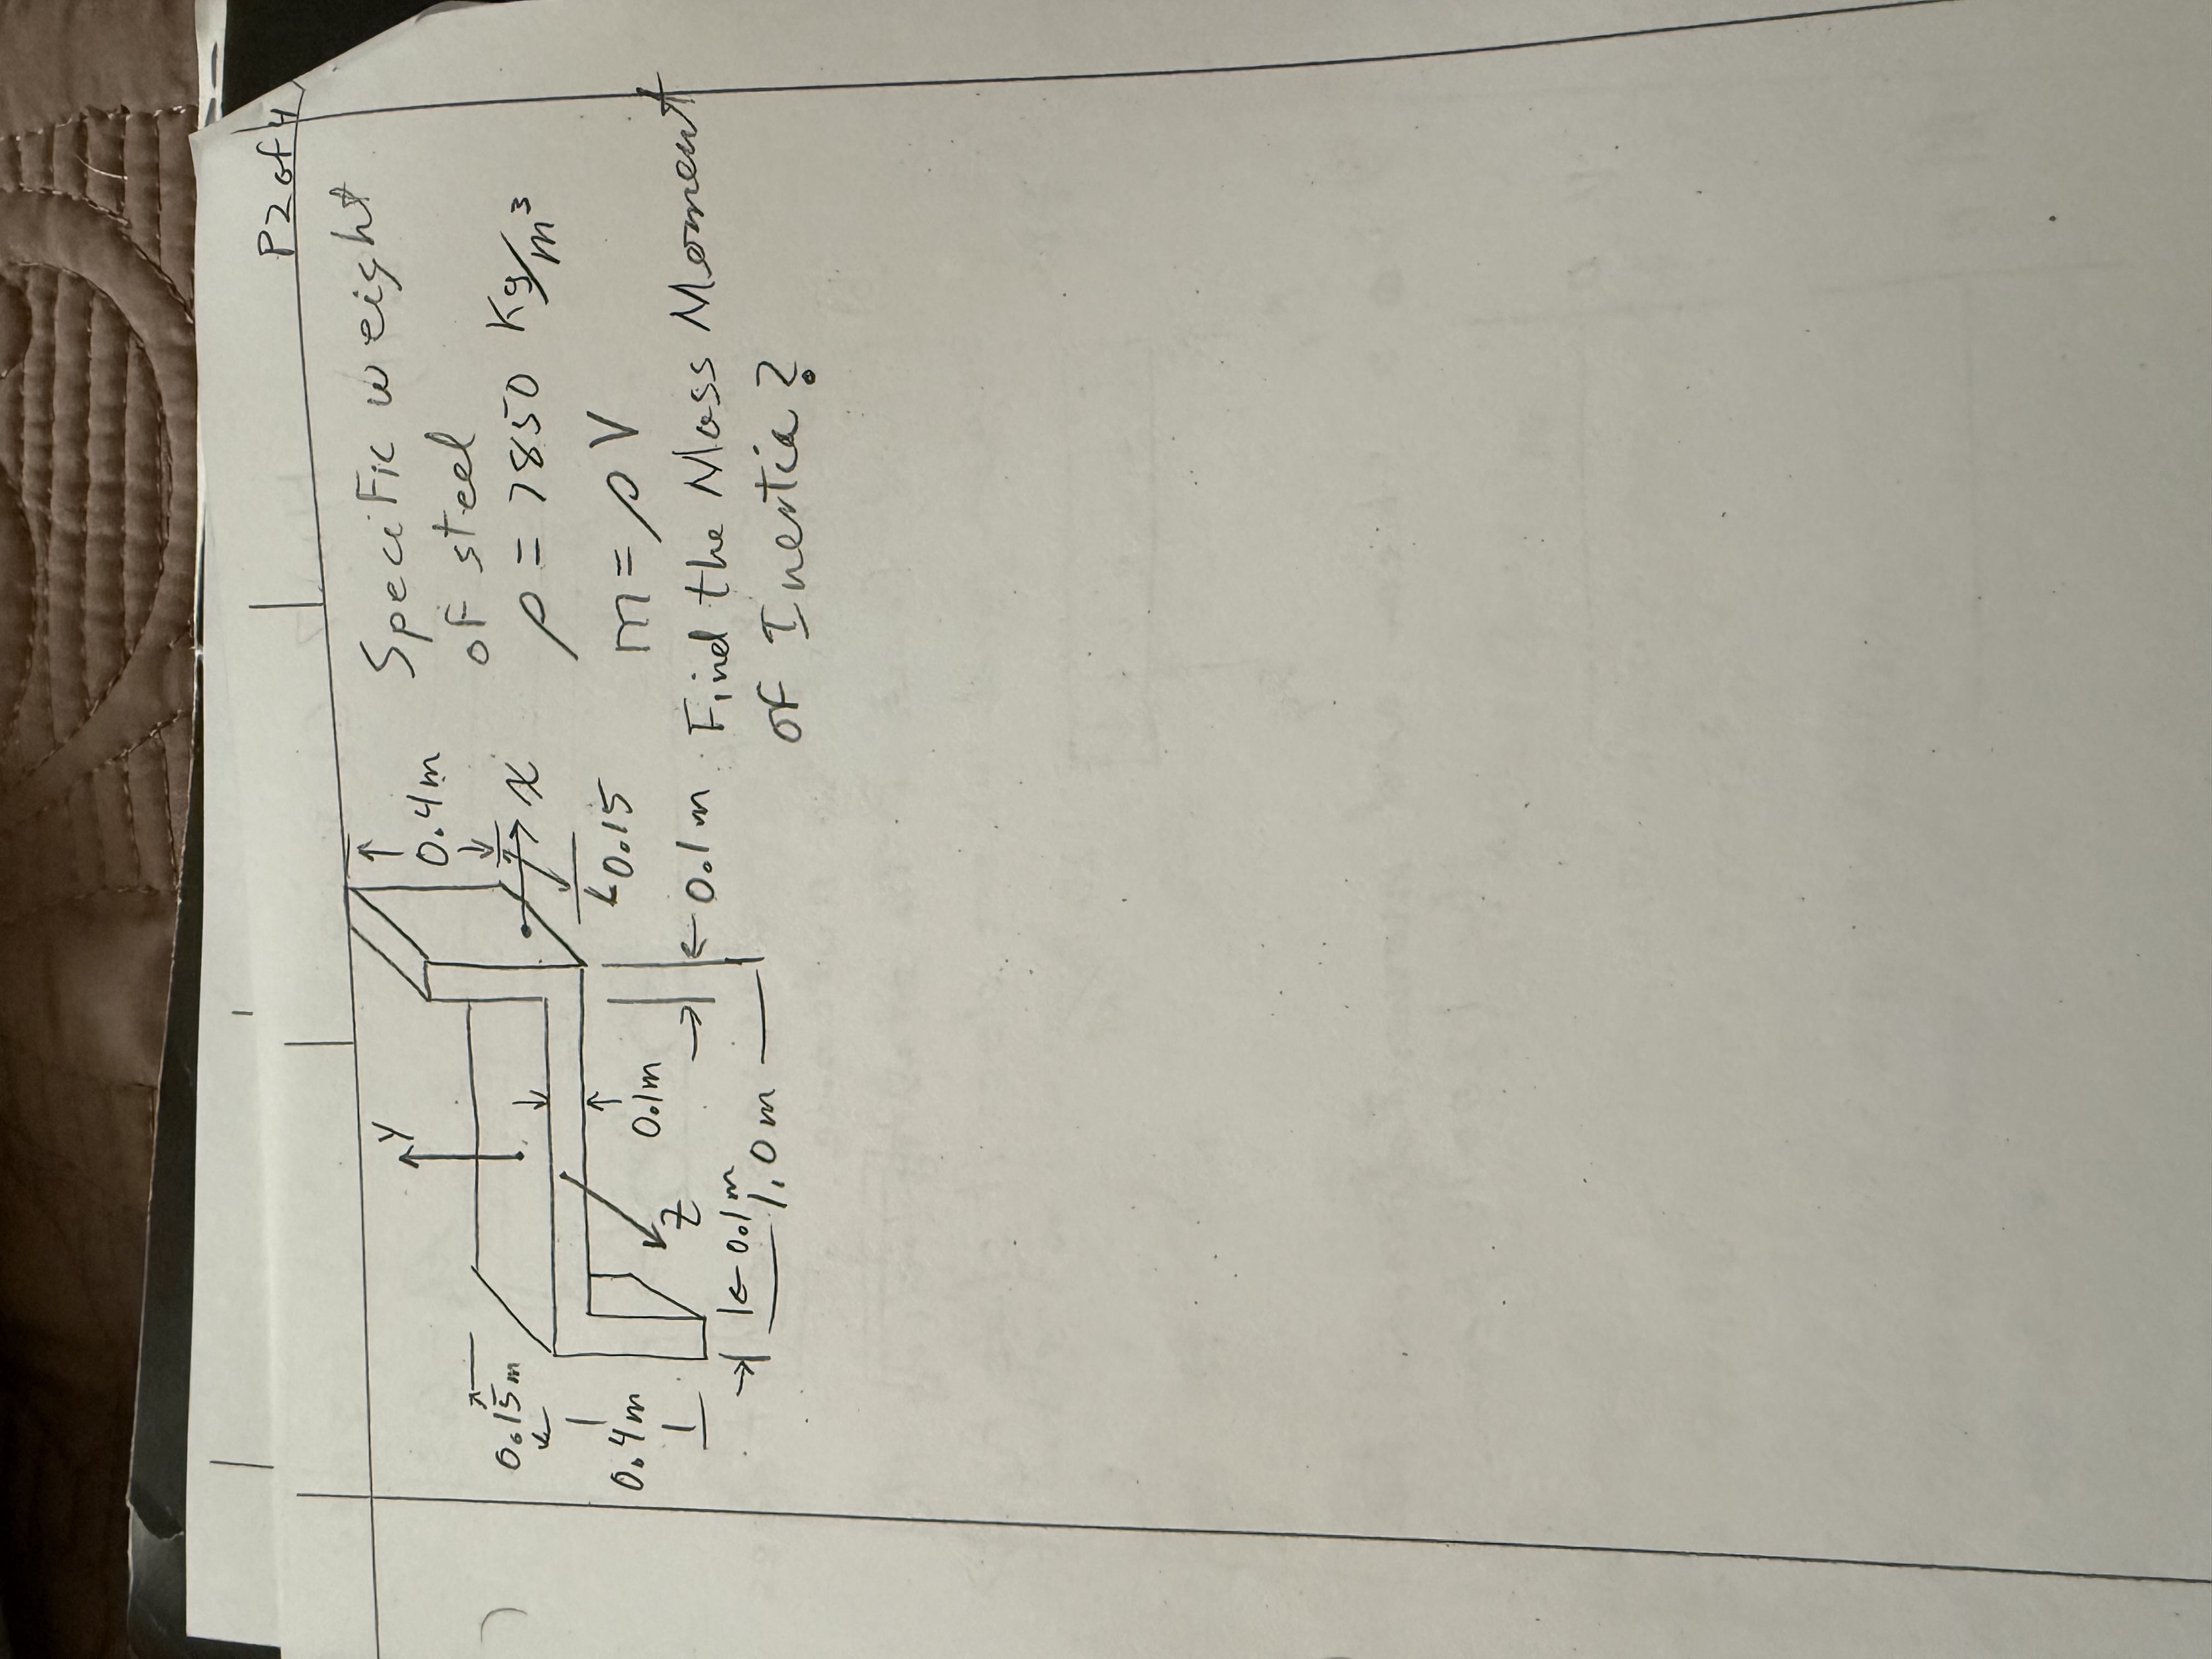 P2of4
Specific weight
of steel
ρ = 7850 Kg/m³
m = ρV
Find the Mass Moment
of Inertia?
Y
0.4m
x
0.15m
0.15
0.4m
0.1m
Z
0.1m
0.1m
1.0m